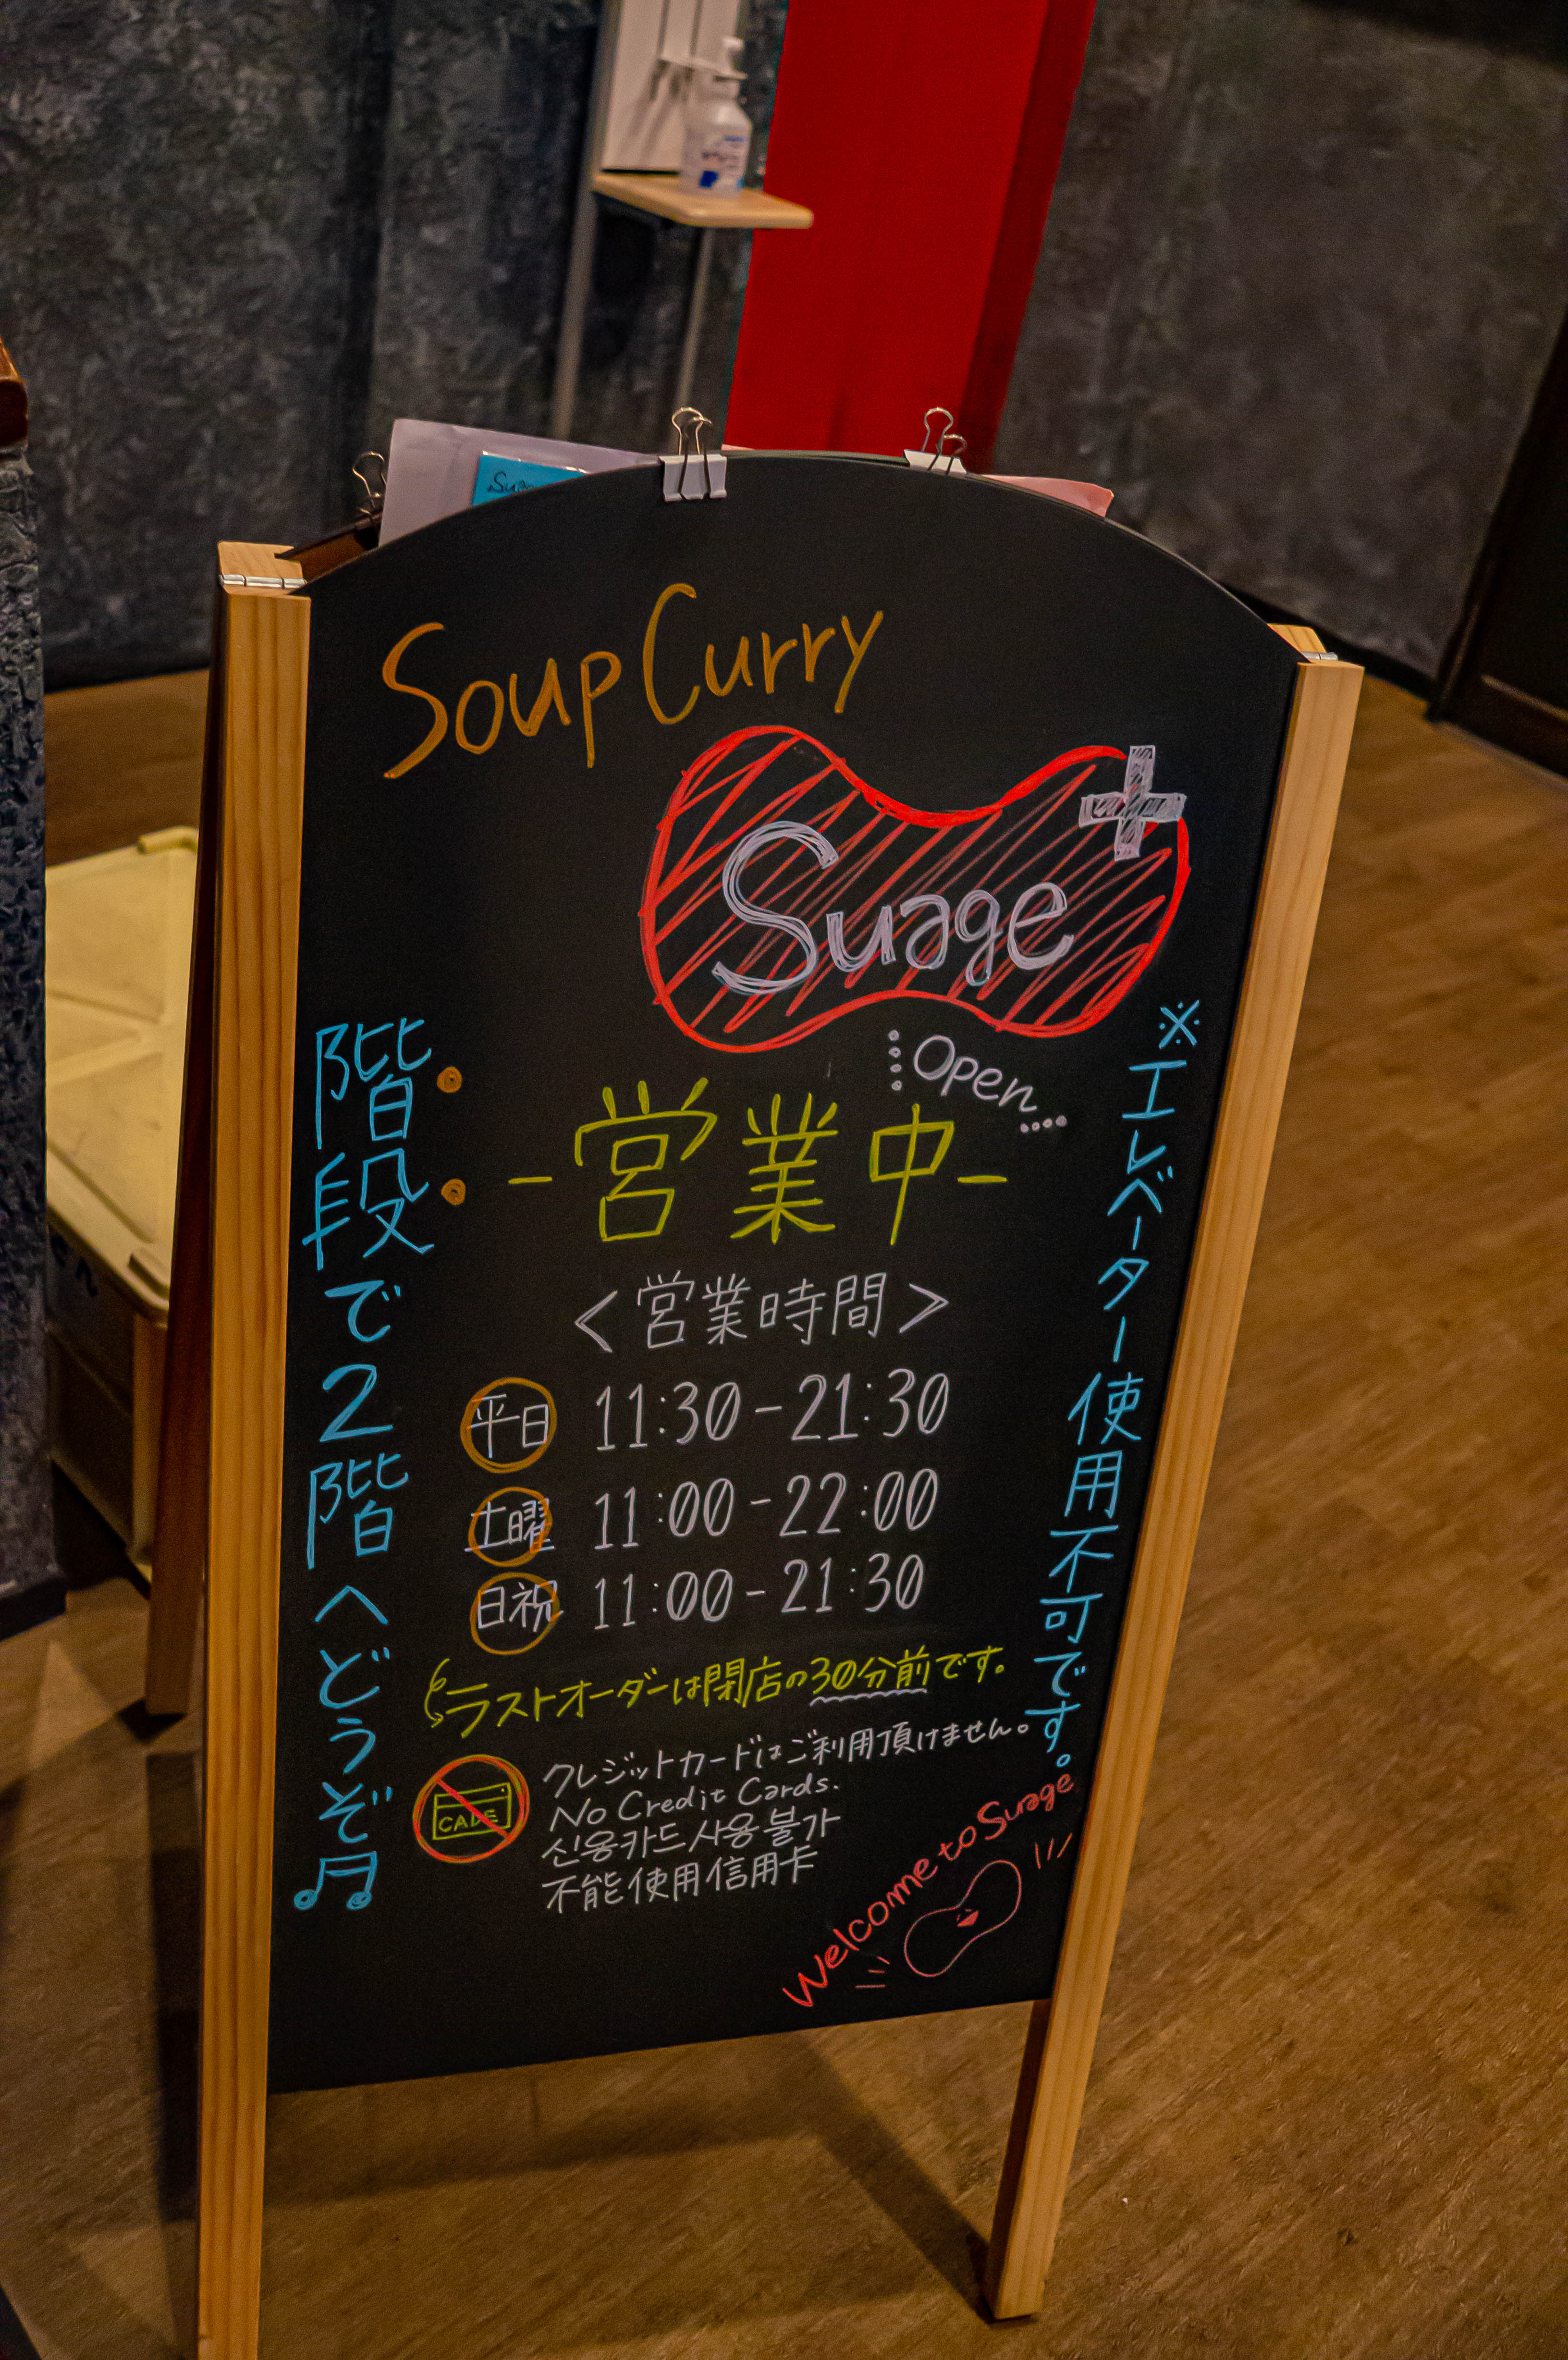 Soup Curry
Suage+
Open...
-営業中-
<営業時間>
平日 11:30-21:30
土曜 11:00-22:00
日祝 11:00-21:30
ラストオーダーは閉店の30分前です。
クレジットカードはご利用頂けません。
No Credit Cards.
신용카드 사용 불가
不能使用信用卡
Welcome to Suage
階段で2階へどうぞ♫
※エレベーター使用不可です。